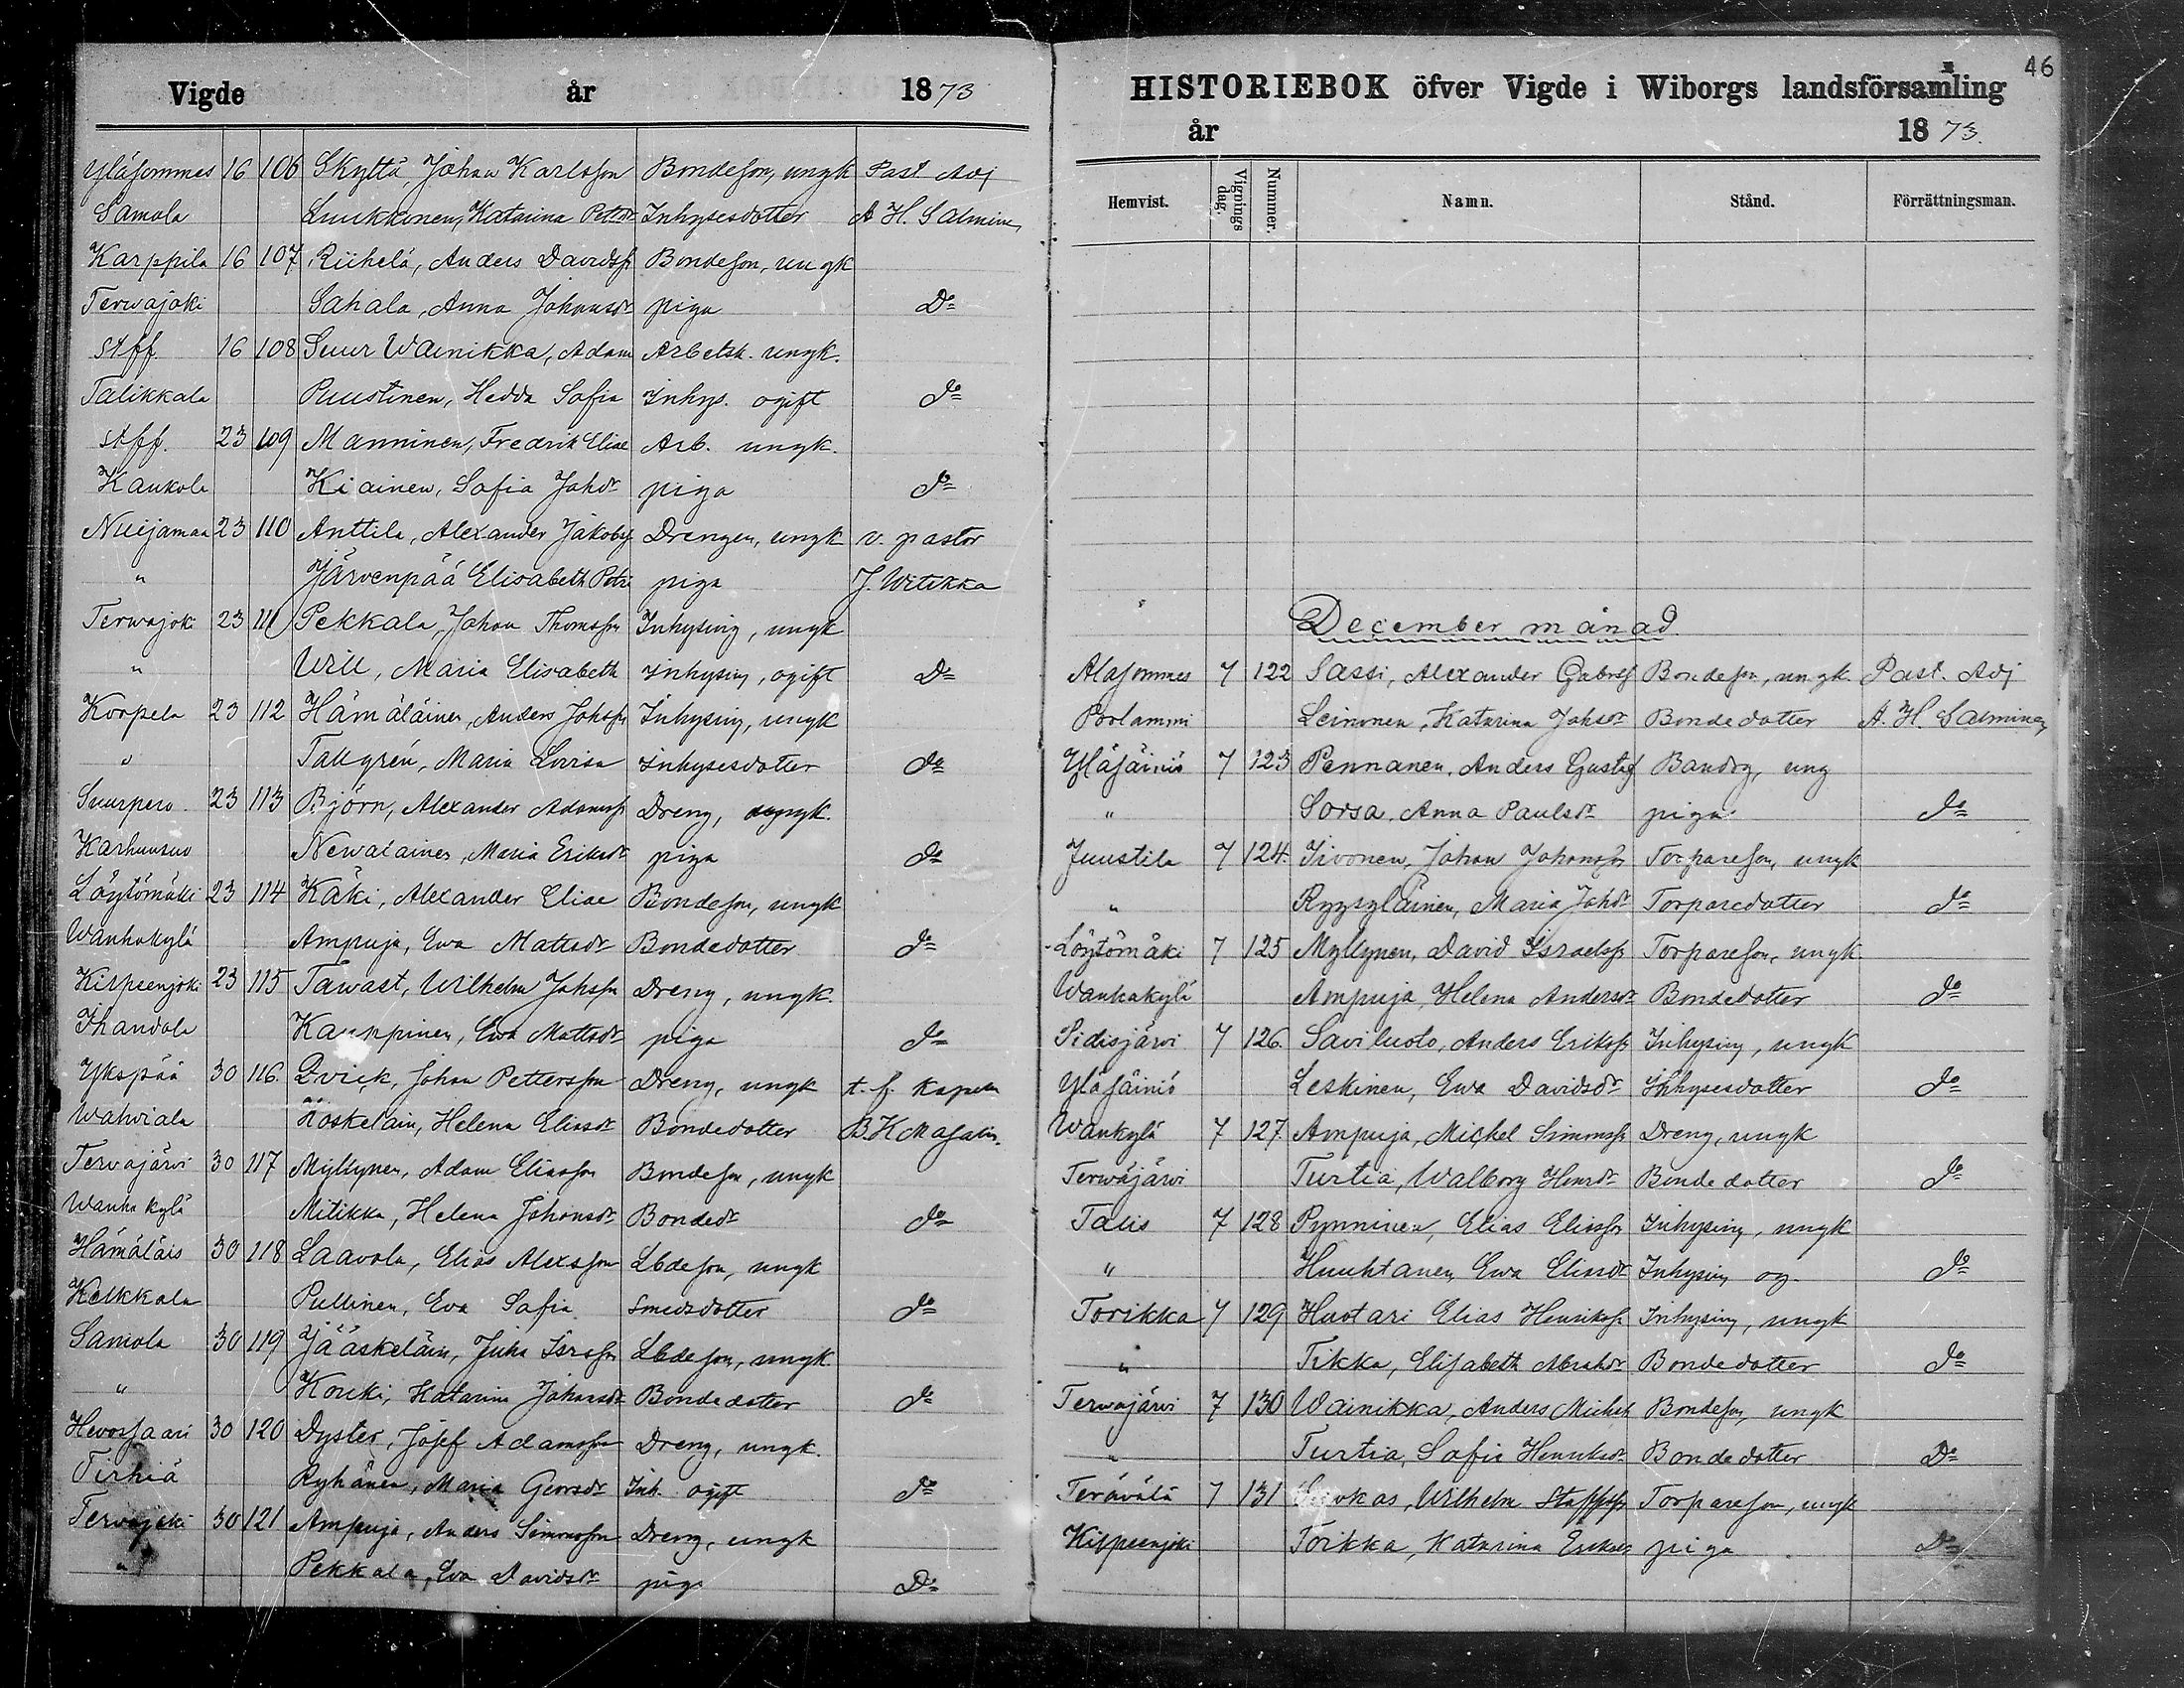 Vigde år 1873
Yläsommes 16 106 Skyttä, Johan Karlsson Bondeson, ungk Past Adj
Samola Luukkonen, Katarina Pettsdr Inhysesdotter A H. Salminen
Karppila 16 107 Riihelä, Anders Davidss Bondeson, ungk
Terwajoki Sahala, Anna Johansdr piga Do
St ff. 16 108 Suur Wainikka, Adam Arbetsk. ungk.
Talikkala Puustinen, Hedda Sofia Inhys. ogift do
St ff. 23 109 Manninen, Fredrik Elias Arb. ungk.
Kaukola Kiainen, Sofia Johdr piga do
Nuijamaa 23 110 Anttila, Alexander Jakobss Drengen, ungk v. pastor
" Järvenpää Elisabeth Petri piga J. Witikka
Terwajok 23 111 Pekkala, Johan Thomsson Inhysing, ungk
" Will, Maria Elisabeth Inhysing, ogift Do
Korpela 23 112 Hämäläinen, Anders Johss Inhysing, ungk
" Tallgrén, Maria Lovisa Inhysesdotter do
Suurpero 23 113 Björn, Alexander Adamss Dreng, ungk.
Karhusuo Newalainen, Maria Eriksdr piga do
Löytömäki 23 114 Käki, Alexander Elias Bondeson, ungk
Wanhakylä Ampuja, Ewa Mattsdr Bondedotter do
Kilpeenjoki 23 115 Tawast, Wilhelm Johsson Dreng, ungk.
Ihandola Kauppinen, Ewa Mattsdr piga do
Ykspää 30 116. Qvick, Johan Pettersson Dreng, ungk t. f. kapela
Wahviala Koskelain, Helena Eliasdr Bondedotter B. K Masalin.
Tervajärvi 30 117 Myllynen, Adam Eliasson Bondeson, ungk
Wanha kylä Mitikka, Helena Johansdr Bondedr do
Hämäläis 30 118 Laavola, Elias Alexsson Lbdeson, ungk
Kelkkala Pullinen, Eva Sofia Smedsdotter do
Samola 30 119 Jääskeläin, Juha Israss Lbdeson, ungk
" Kouki, Katarina Johansdr Bondedotter do
Hevossaari 30 120 Dyster, Josef Adamsson Dreng, ungk.
Tirhiä Ryhänen, Maria Georsdr Inh. ogift do
Tervajoki 30 121 Ampuja, Anders Simonsson Dreng, ungk
" Pekkala, Eva Davidsdr piga Do
46
HISTORIEBOK öfver Vigde i Wiborgs landsförsamling
år 1873.
Hemvist. Vignings dag. Nummer. Namn. Stånd. Förrättningsman.
December månad.
Alasommes 7 122 Sassi, Alexander Gabrss Bondeson, ungk. Past. Adj
Porlammi Leinonen, Katarina Johsdr Bondedotter A. H. Salminen
Yläsäiniö 7 123 Pennanen, Anders Gustaf Bandrg, ung
" Sorsa, Anna Paulsdr piga do
Juustila 7 124. Iivonen, Johan Johansson Torpareson, ungk
" Ryysyläinen, Maria Johdr Torparedotter do
Löytömäki 7 125 Myllynen, David Israelss Torpareson, ungk
Wanhakylä Ampuja, Helena Andersdr Bondedotter do
Pidisjärvi 7 126. Saviluoto, Anders Erikss Inhysing, ungk
Yläsäiniö Leskinen, Ewa Davidsdr Inhysesdotter do
Wankylä 7 127. Ampuja, Mickel Simonss Dreng, ungk
Terwajärvi Turtia, Walborg Henrdr Bondedotter do
Talis 7 128 Pynninen, Elias Eliasson Inhysing, ungk
" Huuhtanen, Ewa Eliasdr Inhysing og do
Torikka 7 129 Huotari Elias Henrikss Inhysing, ungk
" Tikka, Elisabeth Abrahdr Bondedotter do
Terwajärvi 7 130 Wainikka, Anders Michels Bondeson, ungk
" Turtia, Sofia Henriksdr Bondedotter Do
Terävälä 7 131 Wilhelm Staffss Torpareson, ungk
Kilpeenjoki Torkka, Katarina Eriksdr piga Do